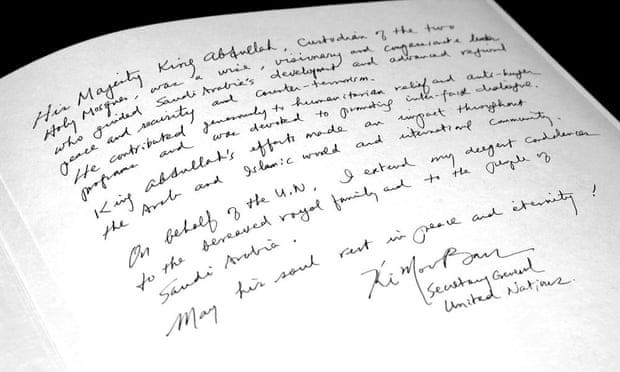 His Majesty King Abdullah, Custodian of the two
Holy Mosques, was a wise, visionary and compassionate leader
who guided Saudi Arabia's development and advanced regional
peace and security and counter-terrorism.
He contributed generously to humanitarian relief and anti-hunger
programs and was devoted to promoting inter-faith dialogue.
King Abdullah's efforts made an impact throughout
the Arab and Islamic world and international community.
On behalf of the U.N., I extend my deepest condolences
to the bereaved royal family and to the people of
Saudi Arabia.
May his soul rest in peace and eternity!
Ki Moon Ban
Secretary General
United Nations.